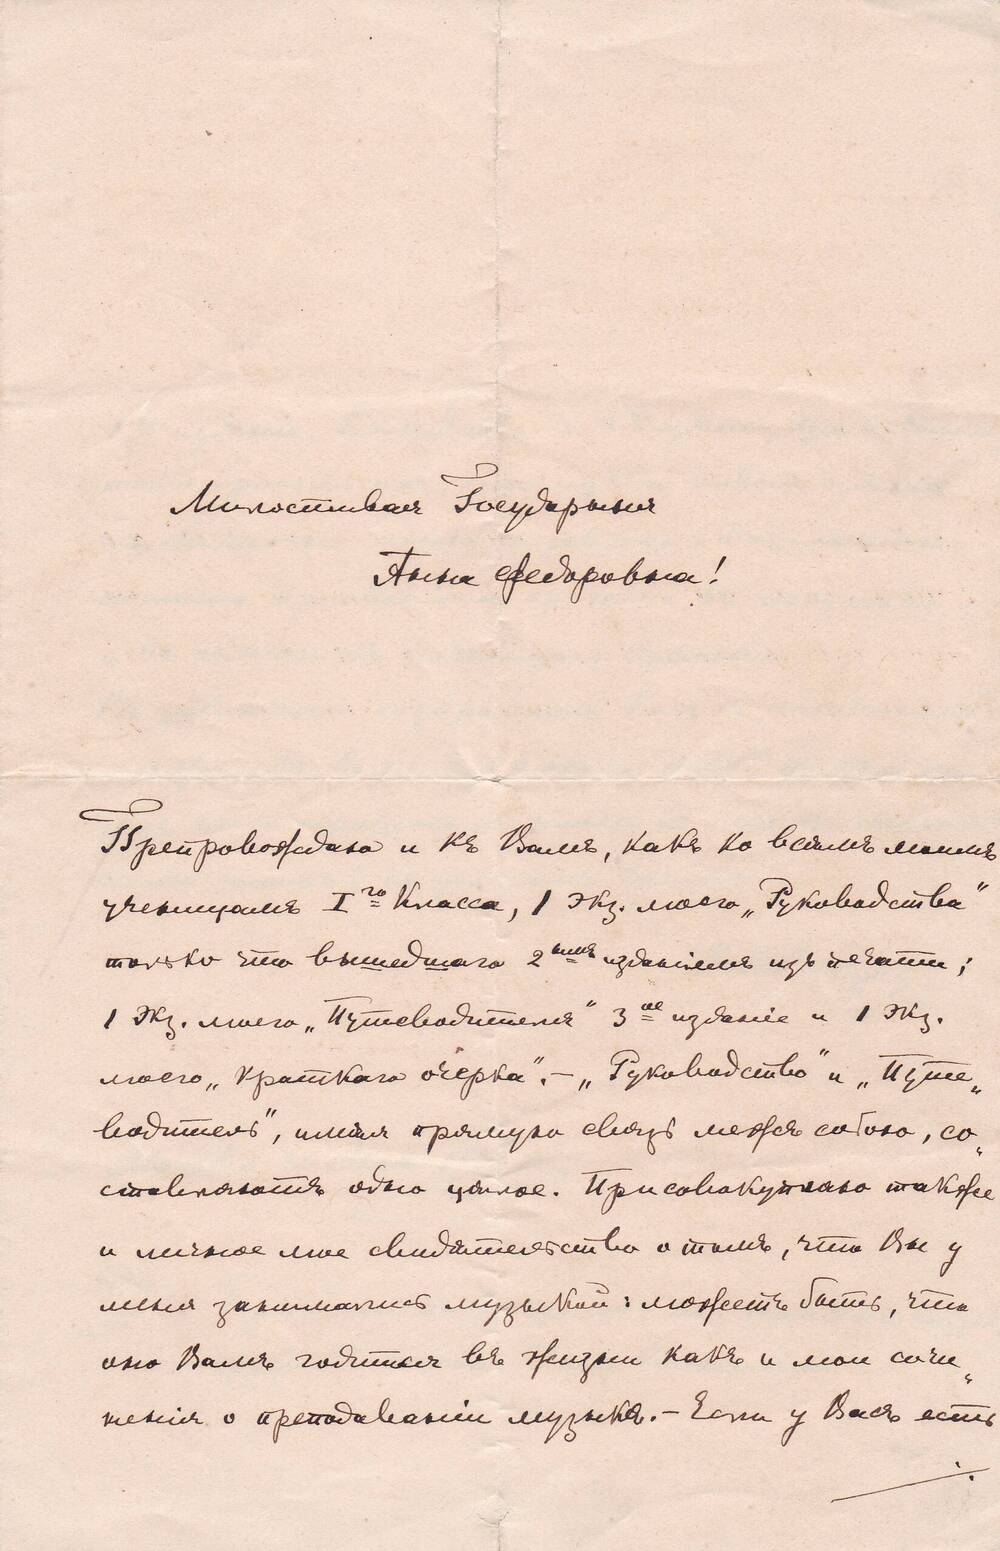 Милостивая Государыня
Анна Федоровна!
Препровождаю и къ Вамъ, какъ ко всѣмъ моимъ
ученицамъ I го Класса, 1 экз. моего „Руководства"
только что вышедшаго 2 ымъ изданіемъ изъ печати;
1 экз. моего „Путеводителя" 3 ое изданіе и 1 экз.
моего „Краткаго очерка". — „Руководство" и „Путе„
водитель", имѣя прямую связь между собою, со„
ставляютъ одно цѣлое. Присовокупляю также
и личное мое свидѣтельство о томъ, что Вы у
меня занимались музыкой: можетъ быть, что
оно Вамъ годится въ жизни какъ и мои сочи„
ненія о преподаваніи музыкѣ. — Если у Васъ есть